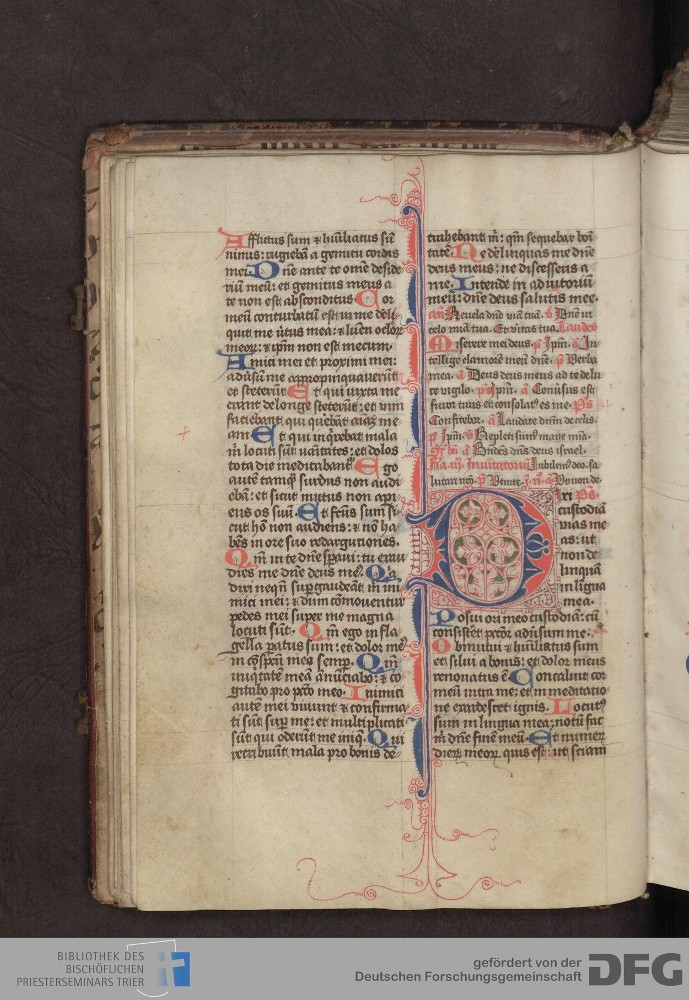 Afflictus sum ⁊ hũiliatus sũ
nimis: rugiebã a gemitu cordis
mei. Dñe ante te omẽ deside
riũ meũ: et gemitus meus a
te non est absconditus. Cor
meũ conturbatũ est in me deli
quit me ũtus mea: ⁊ lumen oclor̃
meor̃: ⁊ ipm̃ non est mecum.
Amici mei et proximi mei:
adũsũ me appropinquauerũt
et steterũt. Et qui iuxta me
erant de longe steterũt: et vim
faciebant qui querebãt aiãm me
am. Et qui inqrebãt mala
m̃ locuti sũt vanitates: et dolos
tota die meditabant̃. Ego
autẽ tamq̃ surdus non audi
ebã: et sicut mutus non apei
ens os suũ. Et fc̃us sum si
cut hõ non audiens: ⁊ nõ ha
bẽs in ore suo redargutiones.
Qm̃ in te dñe spaui: tu exau
dies me dñe deus me9. Q̃a
dixi neqñ sup gaudeãt m̃ ini
mici mei: ⁊ dum cõmouentur
pedes mei super me magna
locuti sũt. Qm̃ ego in fla
gella paratus sum: et dolor me9
in cõspc̃u meo semp. Qm̃
iniqtatẽ meã ãnũciabo: ⁊ co
gitabo pro pc̃co meo. Inimici
autẽ mei viuunt ⁊ confirma
ti sũt sup me: et multiplicati
sũt qui oderũt me iniq̃. Qui
retribuũt mala pro bonis de
trahebant m̃: qm̃ sequebar boni
tatẽ. Ne derelinquas me dñe
deus meus: ne discesseris a
me. Intende in adiutoriũ
meũ: dñe deus salutis mee.
añ Reuela dño viã tuã. v̉ Dñe in
celo mia tua. Et vitas tua. Laudes
Miserere mei deus. p̉ Ipm̃. a In
tellige clamorẽ meũ dñe. p̉ Verba
mea. a Deus deus meus ad te de lu
ce vigilo. p̉ Ipm̃. a Conũsus est
furor tuus et consolat9 es me. Ps
Confitebor. a Laudate dnm̃ de celis.
p̉ Ipm̃. v̉ Repleti sum9 mane mĩa.
a Bñdc̃s dñs deus israel.
Fĩa iij. Inuitatoriũ Iubilem9 deo sa
lutari nr̃o. p̉ Venite. a Vt non de
Dixi Ps.
custodiã
vias me
as: ut
non de
linquã
in ligua
mea.
Posui ori meo custodiã: cũ
consistẽt pctõr adũsum me.
Obmutui ⁊ hũiliatus sum
et silui a bonis: et dolor meus
renouatus ẽ. Concaluit cor
meũ intra me: et in meditatio
ne exardescet ignis. Locut9
sum in lingua mea: notũ fac
m̃ dñe finẽ meũ. Et numer̃
dier̃ meor̃ quis est: ut sciam
BIBLIOTHEK DES
BISCHÖFLICHEN
PRIESTERSEMINARS TRIER
gefördert von der
Deutschen Forschungsgemeinschaft
DFG